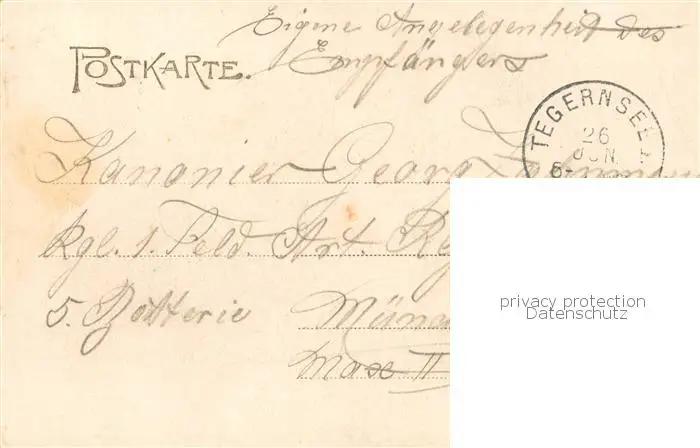 Eigene Angelegenheit des
Empfängers
POSTKARTE.
TEGERNSEE
26
JUN.
6-
Kanonier Georg
kgl. 1. Feld. Art.
5. Batterie
Max II
privacy protection
Datenschutz